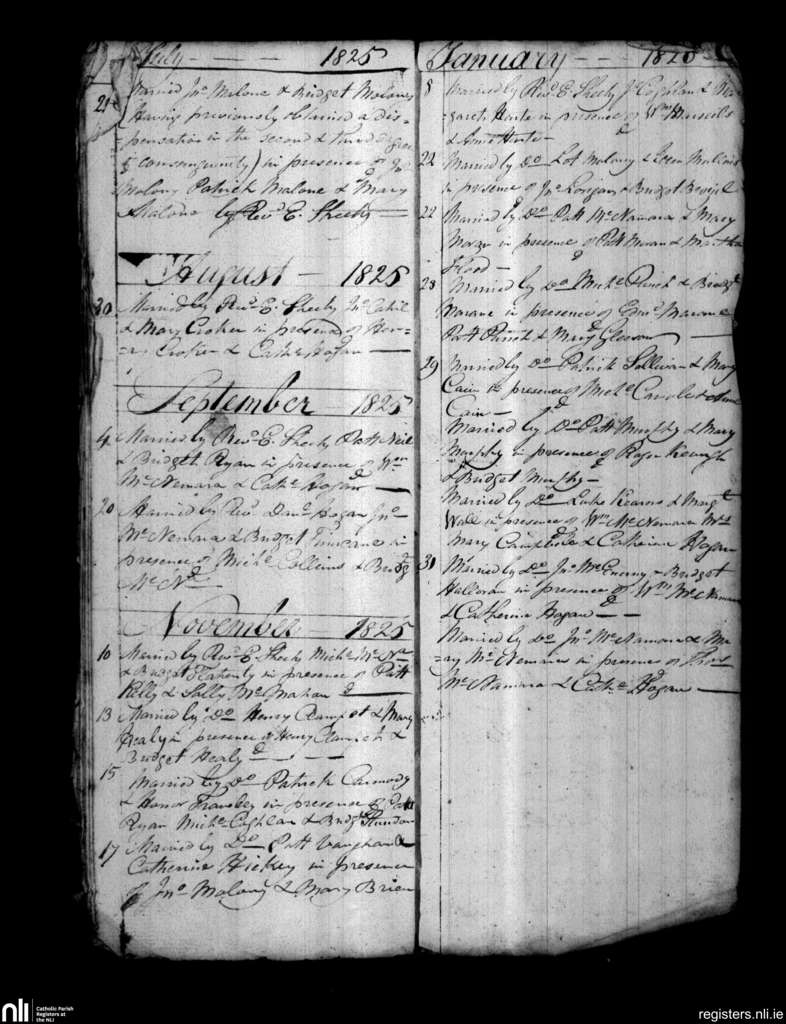 July 1825
21 Married Jno. Malone & Bridget Malony
Having previously obtained a dis-
pensation in the second & third degree
of consanguinity) in presence of Jno
Malony Patrick Malone & Mary
Malone by Revd. E. Sheehy
August 1825
30 Married by Revd. E. Sheehy Jno. Cahil
& Mary Croker in presence of Hen-
ry Croker & Cathe. Hogan
September 1825
4 Married by Revd. E. Sheehy Patt Neil
& Bridget Ryan in presence of Wm
McNemara & Cathe. Hogan
20 Married by Revd. Danl. Hogan Jno
McNemara & Bridget in
presence of Michl. Collins & Bridgt
McNa
November 1825
10 Married by Revd. E. Sheehy Michl. McNa
& Bridget Flaherty in presence of Patt
Kelly & Sally McMahan
13 Married by Do Henry Clampet & Mary
Healy in presence of Henry Clampet &
Bridget Healy
15 Married by Do Patrick Carmody
& Honor in presence of Patt
Ryan Michl. Coghlan & Bridgt
17 Married by Do Patt Vaughan &
Catherine Hickey in presence
of Jno. Malony & Mary Brien
January 1826
8 Married by Revd. E. Sheehy J. Coghlan & Mar-
garet Harte in presence of Wm
& Anne Harte
22 Married by Do Lot Malony & Ellen
in presence of Jno. Longan & Bridget
22 Married by Do Patt McNamara & Mary
Moran in presence of Patt Moran & Martha
Flood
28 Married by Do Michl. & Bridgt
Marane in presence of Edmd. Marane
Patt & Mary Gleeson
29 Married by Do Patrick Sullivan & Mary
Cain in presence of Michl. & Anne
Cain
Married by Do Patt Murphy & Mary
Murphy in presence of Roger Keough
& Bridget Murphy
Married by Do Luke Kearns & Margt
Wall in presence of Wm. McNamara
Mary & Catherine Hogan
31 Married by Do Jno. McEnerny & Bridget
Halloran in presence of Wm. McNamara
& Catherine Hogan
Married by Do Jno. McNamara & Ma-
ry McNemara in presence of Thos
McNamara & Cathe. Hogan
nli Catholic Parish
Registers at
the NLI
registers.nli.ie